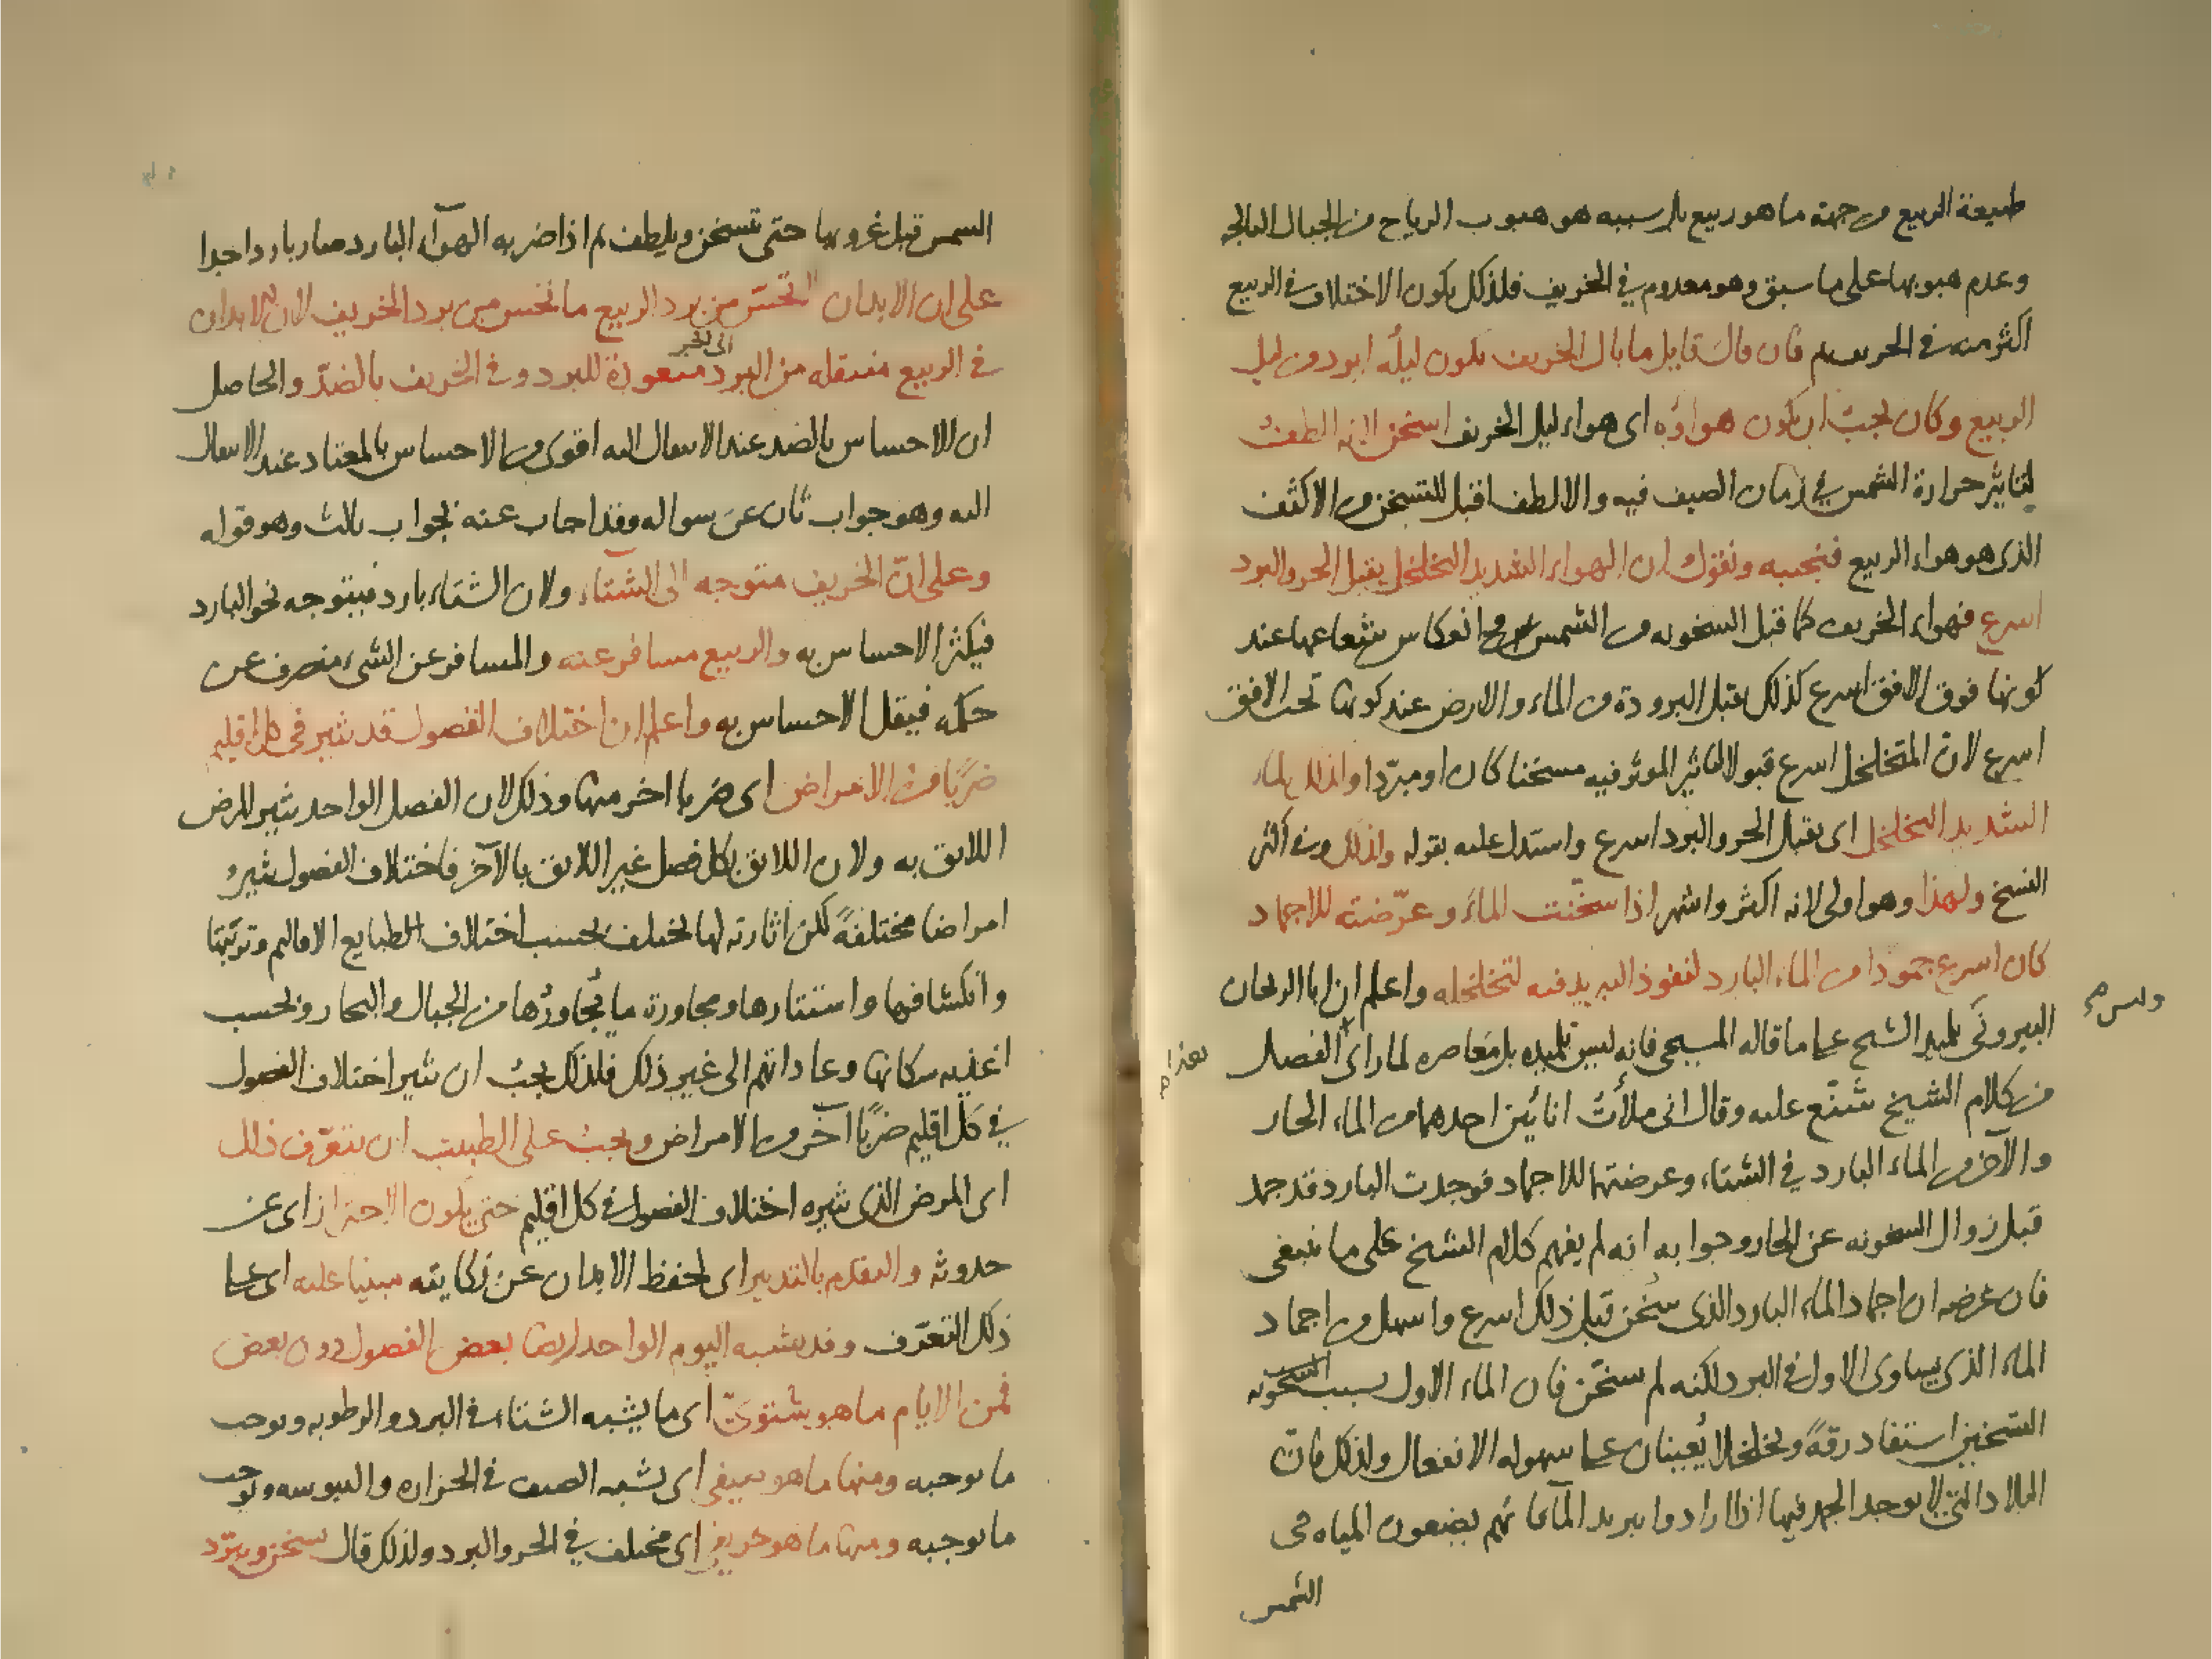 طبيعة الربيع من جهة ما هو ربيع بل سببه هو هبوب الرياح من الجبال الثالجة
وعدم هبوبها على ما سبق وهو معدوم في الخريف فلذلك يكون الاختلاف في الربيع
اكثر منه في الخريف ثم فان قال قايل ما بال الخريف يكون ليله ابرد من ليل
الربيع وكان يجب ان يكون هواؤه اى هواء ليل الخريف اسخن لانه الطف
لتاثير حرارة الشمس في زمان الصيف فيه والالطف اقبل للتسخن من الاكثف
الذى هو هواء الربيع فنجيبه ونقول ان الهواء الشديد التخلخل يقبل الحر والبرد
اسرع فهواء الخريف كما قبل السخونه من الشمس ومن انعكاس شعاعها عند
كونها فوق الافق اسرع كذلك يقبل البرودة من الماء والارض عند كونها تحت الافق
اسرع لان المتخلخل اسرع قبولا لتاثير الموثر فيه مسخنا كان او مبردا وكذلك الماء
الشديد التخلخل اى يقبل الحر والبرد اسرع واستدل عليه بقوله ولذلك وفى اكثر
النسخ ولهذا وهو اولى لانه اكثر واشهر اذا سخّنت الماء وعرّضته للاجماد
كان اسرع جمودا من الماء البارد لنفوذ التبريد فيه لتخلخله واعلم ان ابا الريحان
البيرونى تلميذ الشيخ على ما قاله المسيحى فانه ليس تلميذه بل معاصره لما راى الفصل
وليس
من كلام الشيخ شنّع عليه وقال انى ملأت انائين احدهما من الماء الحار
والآخر من الماء البارد في الشتاء وعرضتهما للاجماد فوجدت البارد قد جمد
قبل زوال السخونه عن الحار وجوابه انه لم يفهم كلام الشيخ على ما ينبغى
فان غرضه ان اجماد الماء البارد الذى سُخن قبل ذلك اسرع واسهل من اجماد
الماء الذى يساوى الاول في البرد لكنه لم يسخّن فان الماء الاول بسبب
التسخين استفاد رقةً وتخلخلا يُعينان على سهوله الانفعال ولذلك فان
البلاد التى لا يوجد الجمد فيها اذا ارادوا تبريد الماء فانهم يضعون المياه فى
الشمس
الشمس قبل غروبها حتى تسخن ويلطف ثم اذا ضربه الهوآء البارد صار باردا جدا
على ان الابدان لا تحسّ من برد الربيع ما تحس من برد الخريف لان الابدان
في الربيع منتقله من البرد الى الحر متعودة للبرد وفي الخريف بالضدّ والحاصل
ان الاحساس بالضد عند الانتقال اليه اقوى من الاحساس بالمعتاد عند الانتقال
اليه وهو جواب ثان عن سواله وقد اجاب عنه بجواب ثالث وهو قوله
وعلى انّ الخريف متوجه الى الشتآء ولان الشتاء بارد فيتوجه نحو البارد
فيكثر الاحساس به والربيع مسافر عنه والمسافر عن الشىء منصرف عن
حكمه فيقل الاحساس به واعلم ان اختلاف الفصول قد يثير في كل اقليم
ضربًا من الامراض اى ضربا اخر منها وذلك لان الفصل الواحد يثير المرض
اللايق به ولان اللايق بكل فصل غير اللائق بالآخر فاختلاف الفصول يثير
امراضا مختلفةً لكن اثارته لها يختلف بحسب اختلاف الطبايع الاقاليم وتربتها
وانكشافها واستتارها ومجاورة ما يُجاورُها من الجبال والبحار وبحسب
اغذيه سكانها وعاداتهم الى غير ذلك فلذلك يجب ان يثير اختلاف الفصول
في كل اقليم ضربًا آخر من الامراض ويجب على الطبيب ان يتعرّف ذلك
اى المرض الذى يثيره اختلاف الفصول في كل اقليم حتى يكون الاحتراز اى عن
حدوثه والتقدم بالتدبير اى لحفظ الابدان عن نكايته مبنيا عليه اى على
ذلك التعرّف وقد يشبه اليوم الواحد ايضا بعض الفصول دون بعض
فمن الايام ما هو شتوىّ اى ما يشبه الشتاء في البرد والرطوبه ويوجب
ما يوجبه ومنها ما هو صيفى اى يشبه الصيف في الحراره واليبوسه ويوجب
ما يوجبه ومنها ما هو خريفى اى مختلف في الحر والبرد ولذلك قال يسخن ويبرّد